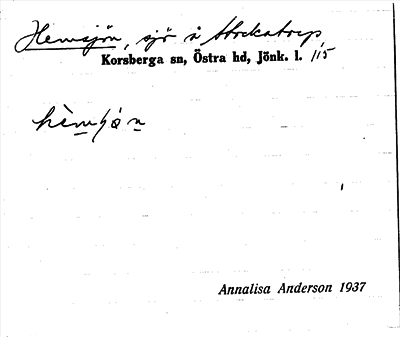 Hemsjön, sjö å Stockatorp,
Korsberga sn, Östra hd, Jönk. l. 115
hèmʃǫ̀n
Annalisa Anderson 1937